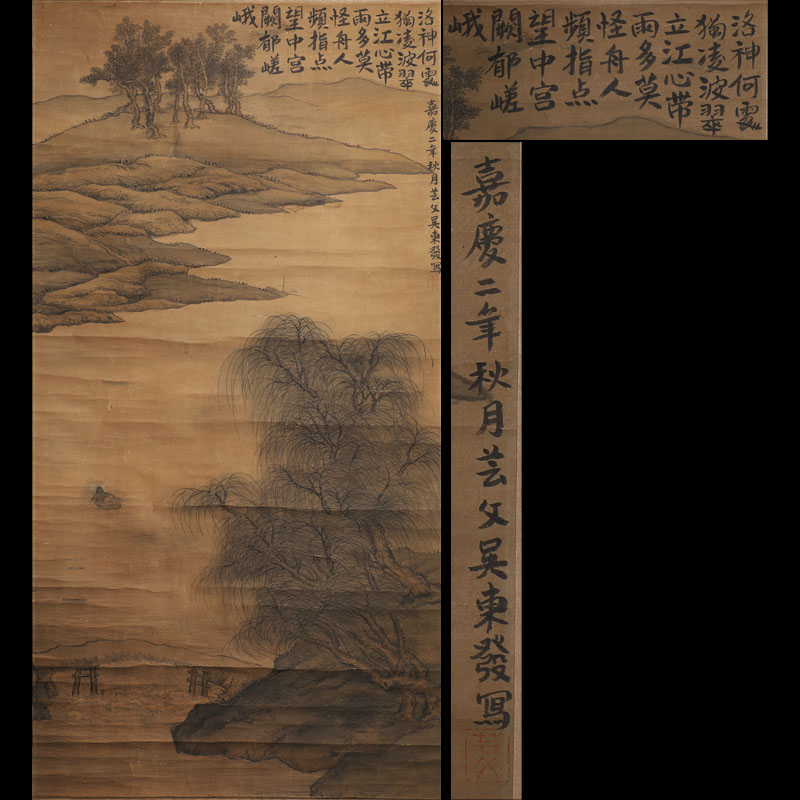 洛神何處
猶淩波翠
立江心帶
雨多莫
怪舟人
頻指点
望中宮
闕郁嵯
峨
嘉慶二年秋月芸父吴東發寫
洛神何處
猶淩波翠
立江心帶
雨多莫
怪舟人
頻指点
望中宮
闕郁嵯
峨
嘉慶二年秋月芸父吴東發寫